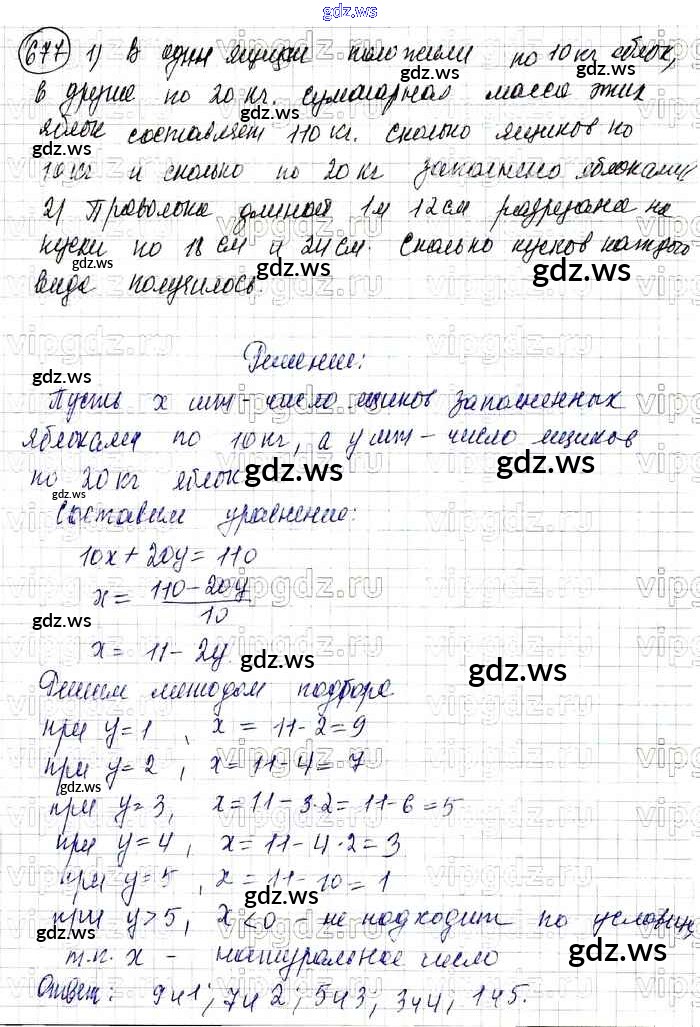 gdz.ws
677 1) В одни ящики положили по 10 кг яблок,
в другие по 20 кг. суммарная масса этих
яблок составляет 110 кг. Сколько ящиков по
10 кг и сколько по 20 кг заполнено яблоками
2) Проволока длиной 1м 12см разрезана на
куски по 18 см и 24 см. Сколько кусков каждого
вида получилось.
Решение:
Пусть x шт - число ящиков заполненных
яблоками по 10 кг, а y шт - число ящиков
по 20 кг яблок
Составим уравнение:
10x + 20y = 110
x = 110 - 20y / 10
x = 11 - 2y
Решим методом подбора
при y = 1, x = 11 - 2 = 9
при y = 2, x = 11 - 4 = 7
при y = 3, x = 11 - 3·2 = 11 - 6 = 5
при y = 4, x = 11 - 4·2 = 3
при y = 5, x = 11 - 10 = 1
при y > 5, x < 0 - не подходит по условию,
т.к. x - натуральное число
Ответ: 9 и 1; 7 и 2; 5 и 3; 3 и 4; 1 и 5.